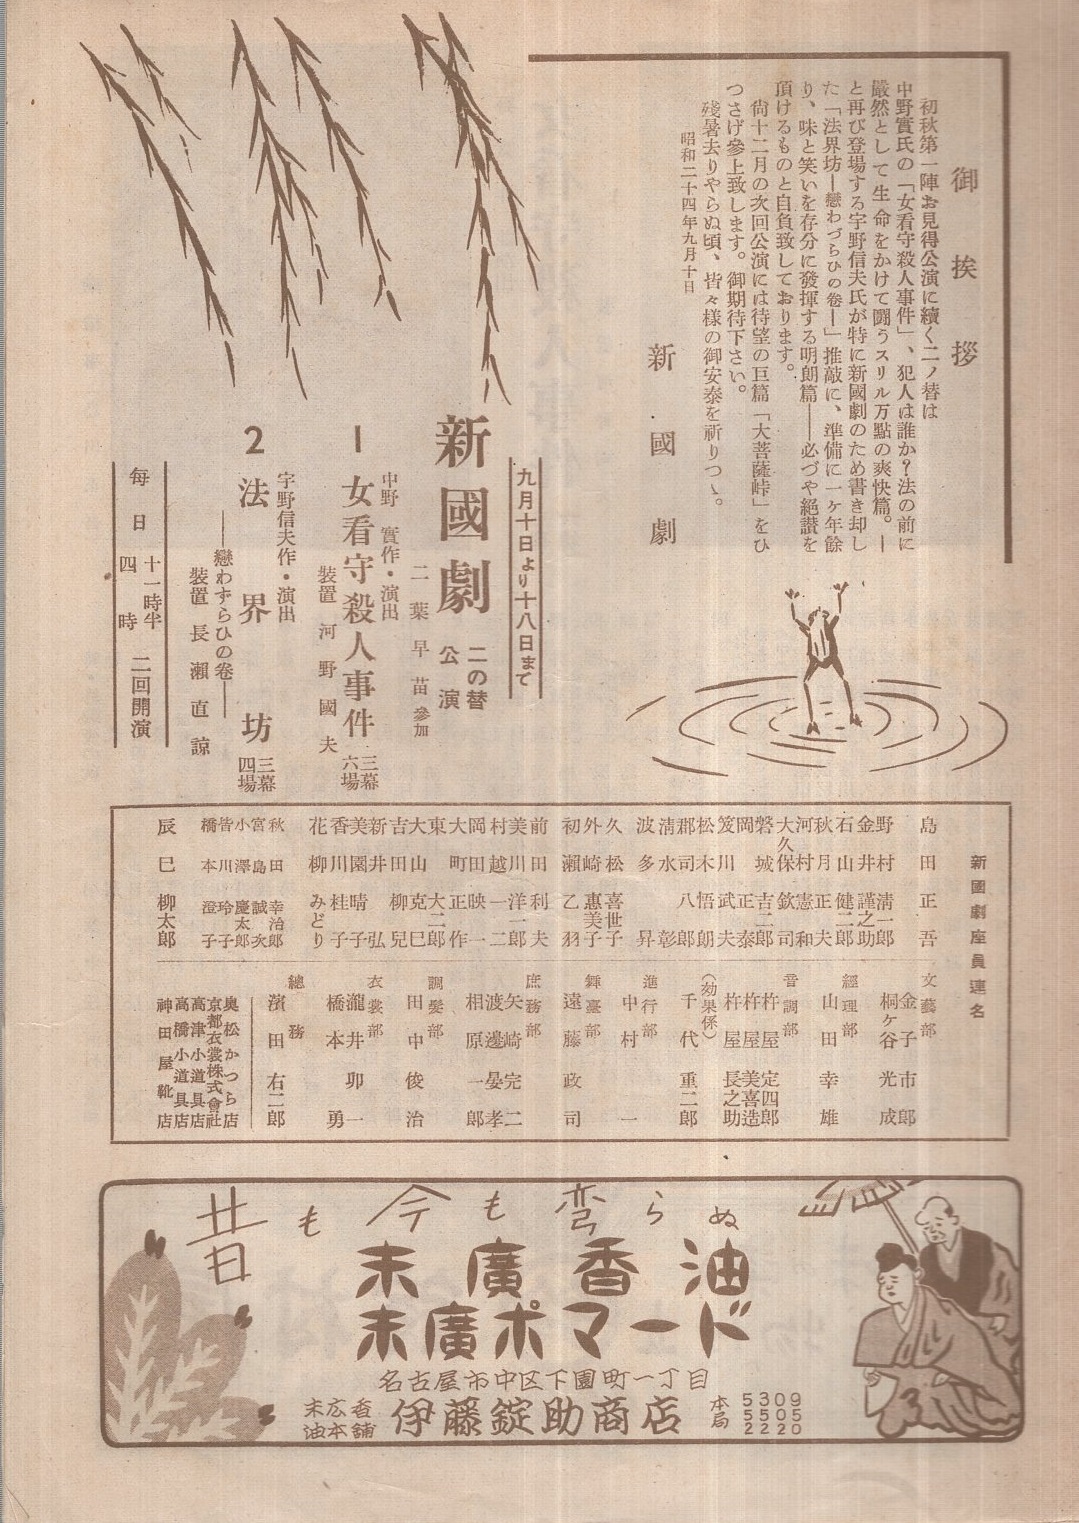 御挨拶
初秋第一陣お見得公演に續く二ノ替は
中野實氏の「女看守殺人事件」、犯人は誰か?法の前に
嚴然として生命をかけて闘うスリル万點の爽快篇。ー
と再び登場する宇野信夫氏が特に新國劇のため書き却し
た「法界坊ー戀わづらひの卷ー」推敲に、準備に一ヶ年餘
り、味と笑いを存分に發揮する明朗篇――必づや絕讃を
頂けるものと自負致しております。
尙十二月の次回公演には待望の巨篇「大菩薩峠」をひ
つさげ參上致します。御期待下さい。
殘暑去りやらぬ頃、皆々様の御安泰を祈りつゝ。
昭和二十四年九月十日
新國劇
九月十日より十八日まで
新國劇 二の替公演
二葉早苗參加
中野實作・演出
1 女看守殺人事件 三幕六場
裝置 河野國夫
宇野信夫作・演出
2 法界坊 三幕四場
――戀わずらひの卷――
裝置 長瀬直諒
每日 十一時半 四時 二回開演
新國劇座員連名
島田正吾
野村清一郎
金井謹之助
石山健二郎
秋月正夫
河村憲和
大久保欽司
磐城吉二郎
岡正泰
笈川武夫
松木悟朗
郡司八郎
淸水彰
波多昇
久松喜世子
外崎惠美子
初瀨乙羽
前田利夫
美川洋一郎
村越一二
岡田映一
大町正作
東大二郎
大山克巳
吉田柳兒
新井弘
美園晴子
香川桂子
花柳みどり
秋田幸治郎
宮島誠次
小澤慶太郎
皆川玲子
橋本澄子
辰巳柳太郎
文藝部
金子市郎
桐ヶ谷光成
經理部
山田幸雄
音調部
杵屋定四郎
杵屋美喜造
杵屋長之助
(効果係)
千代重二郎
進行部
中村一
舞臺部
遠藤政司
庶務部
矢崎完二
渡邊晏孝
相原一郎
調髮部
田中俊治
衣裳部
瀧井卯一
橋本勇
總務
濱田右二郎
奥松かつら店
京都衣裳株式會社
高津小道具店
高橋小道具店
神田屋靴店
昔も今も変らぬ
末廣香油
末廣ポマード
名古屋市中区下園町一丁目
末広香油本舗 伊藤錠助商店
本局 5309
5505
2220